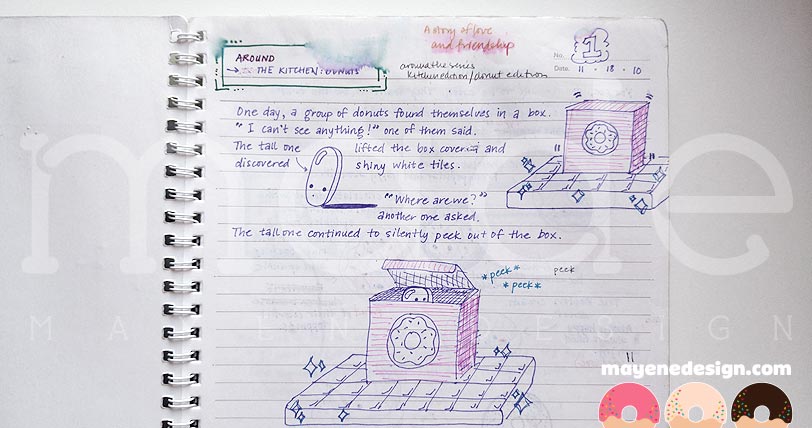 A story of love
and friendship
No. 1
Date. 11 - 18 - 10
AROUND
THE KITCHEN: DONUTS
around the series
kitchen edition/donut edition
One day, a group of donuts found themselves in a box.
"I can't see anything!" one of them said.
The tall one lifted the box covering and
discovered shiny white tiles.
"Where are we?"
another one asked.
The tall one continued to silently peek out of the box.
*peek* peek
*peek*
MAYENE DESIGN
mayenedesign.com